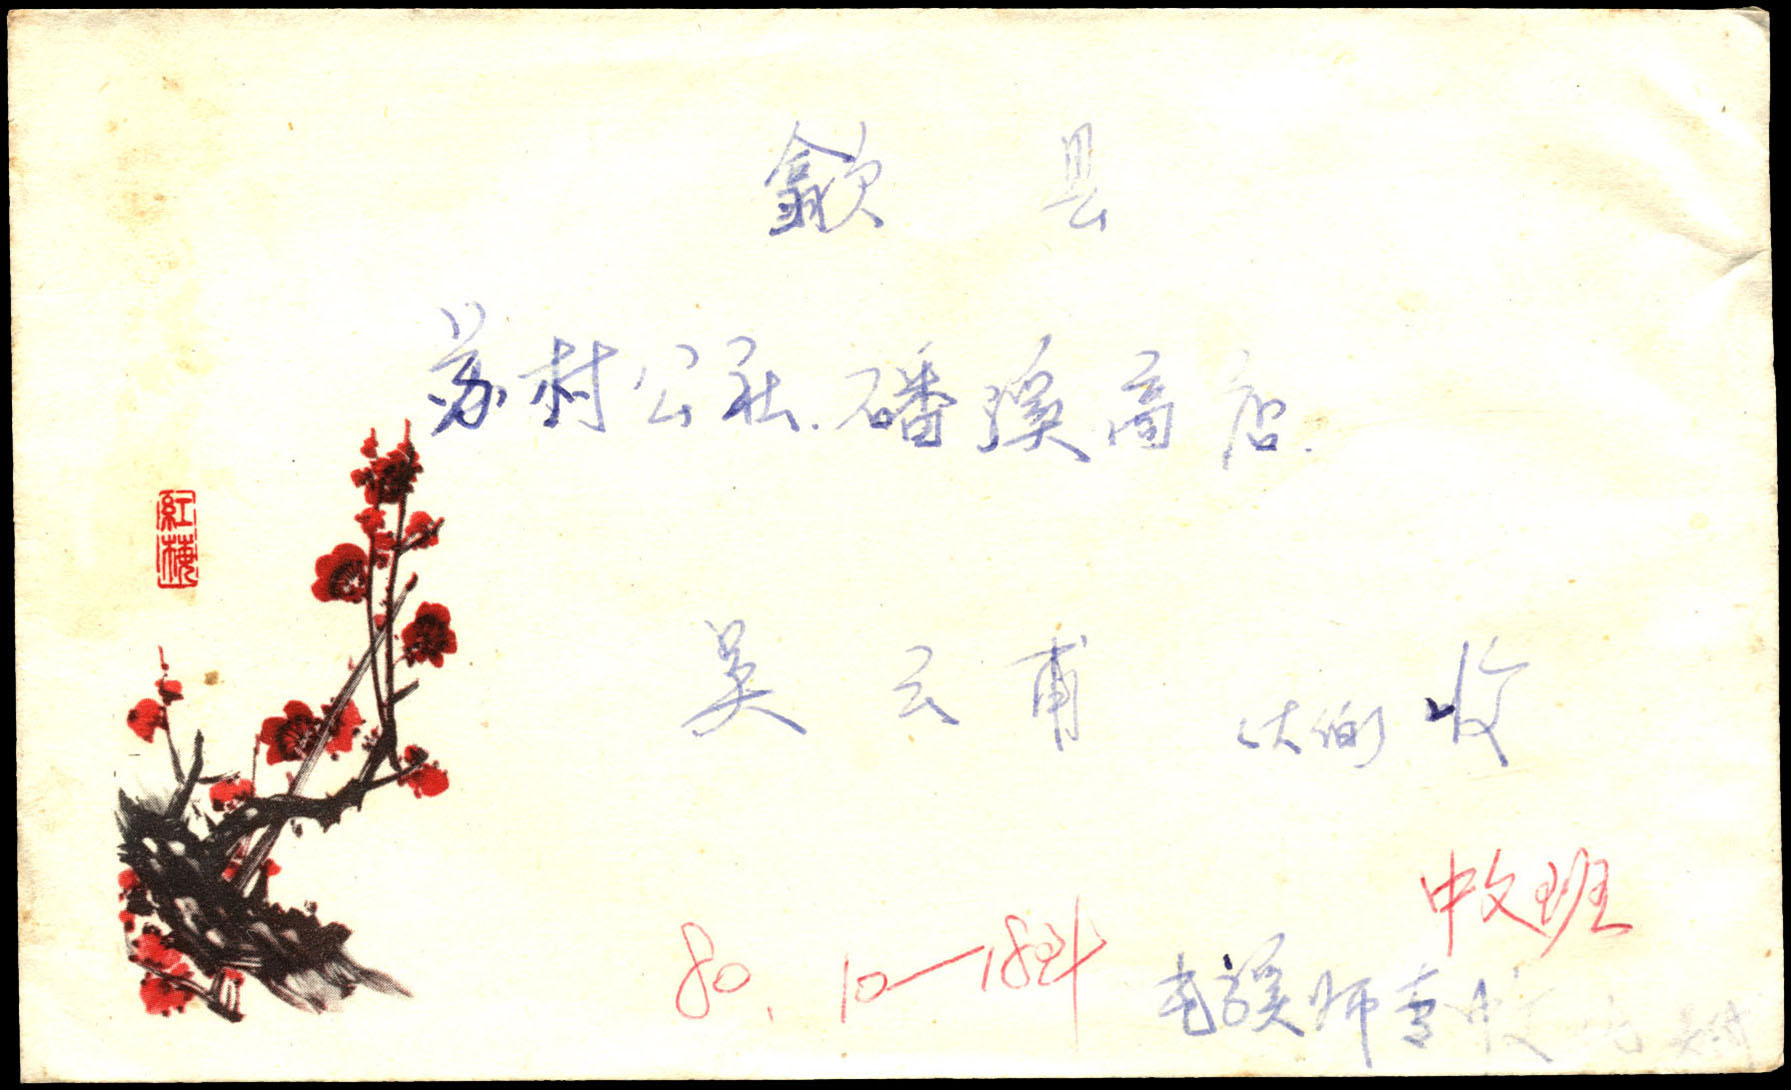 歙县
苏村公社.磻溪商店.
吴云甫 大伯 收
红梅
中文班
80.10—18
屯溪师专